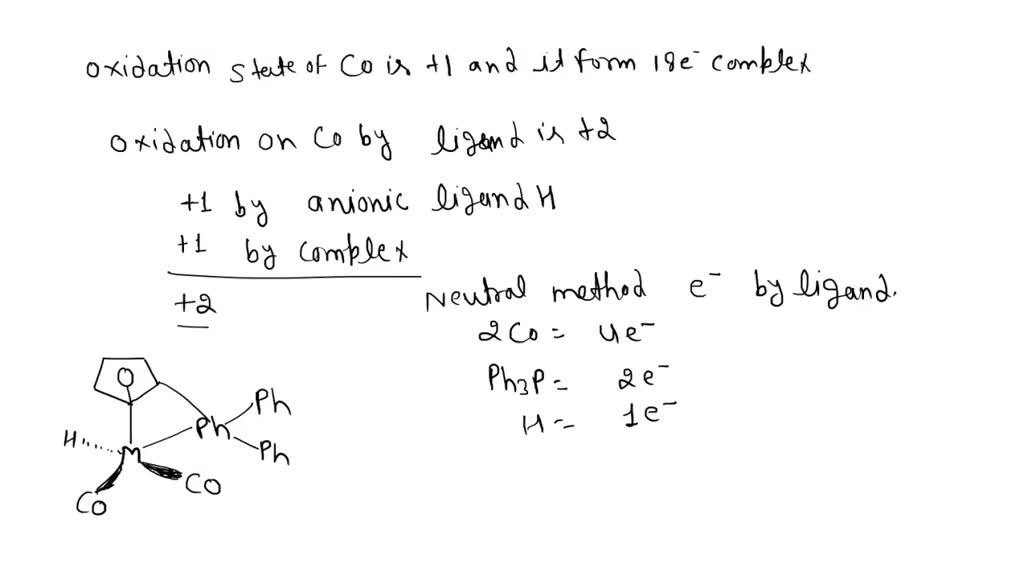 oxidation state of Co is +1 and it form 18e⁻ complex
oxidation on Co by ligand is +2
+1 by anionic ligand H
+1 by complex
+2
Neutral method e⁻ by ligand.
2Co = 4e⁻
Ph₃P = 2e⁻
H = 1e⁻
Ph
H Ph
M Ph
Co Co